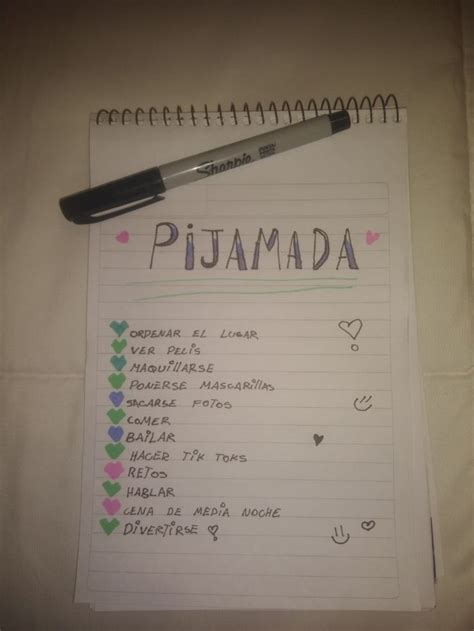 Sharpie
PiJAMADA
ORDENAR EL LUGAR
VER PELiS
MAQUiLLARSE
PONERSE MASCARiLLAS
SACARSE FOTOS
COMER
BAiLAR
HACER TiK TOKS
RETOS
HABLAR
CENA DE MEDiA NOCHE
DiVERTiRSE !